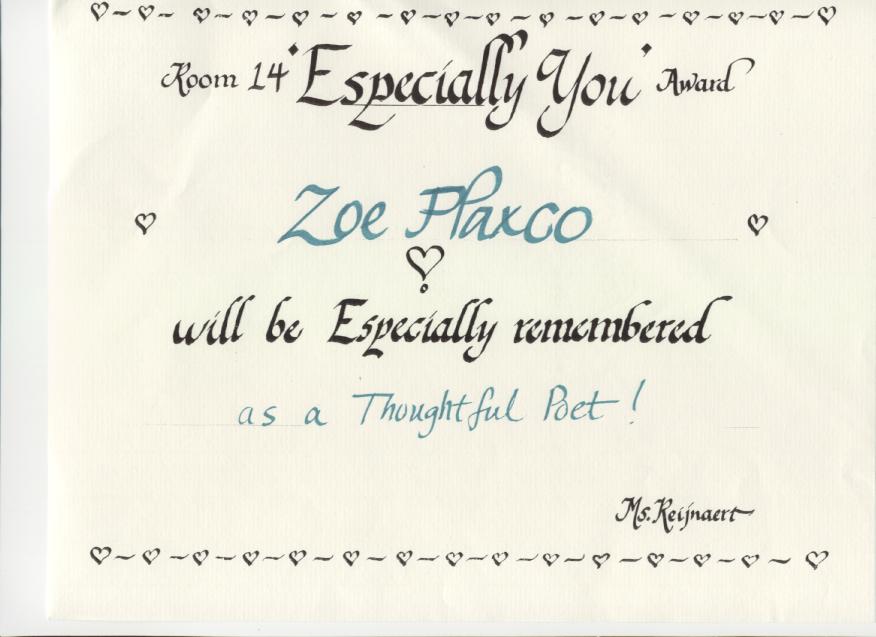 Room 14 "Especially You" Award
Zoe Plaxco
will be Especially remembered
as a Thoughtful Poet!
Ms. Reijnaert